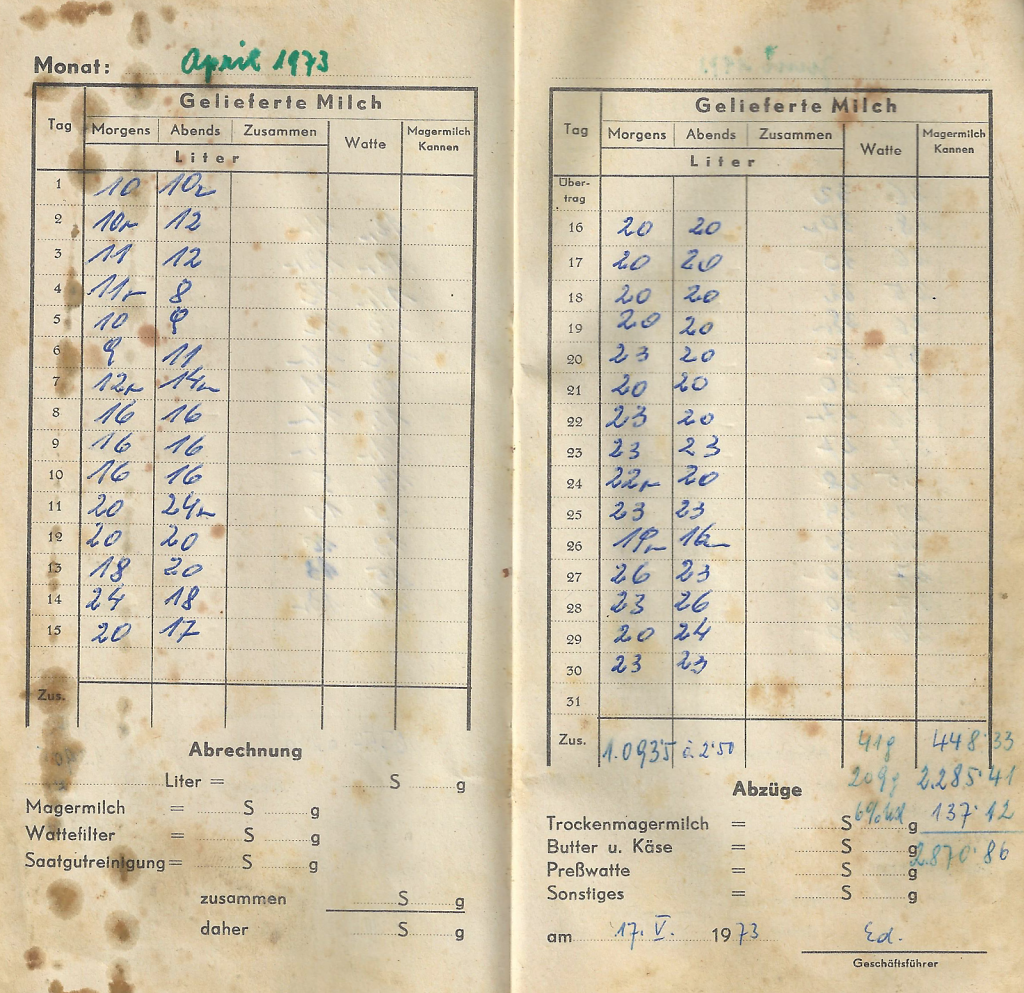 Monat: April 1973
Gelieferte Milch
Tag Morgens Abends Zusammen Watte Magermilch Kannen
Liter
1 10 10
2 10 12
3 11 12
4 11 8
5 10 9
6 9 11
7 12 14
8 16 16
9 16 16
10 16 16
11 20 24
12 20 20
13 18 20
14 24 18
15 20 17
Zus.
Abrechnung
Liter = S g
Magermilch = S g
Wattefilter = S g
Saatgutreinigung = S g
zusammen S g
daher S g
Gelieferte Milch
Tag Morgens Abends Zusammen Watte Magermilch Kannen
Liter
Über-
trag
16 20 20
17 20 20
18 20 20
19 20 20
20 23 20
21 20 20
22 23 20
23 23 23
24 22 20
25 23 23
26 19 16
27 26 23
28 23 26
29 20 24
30 23 23
31
Zus. 1.093'5 à 2'50 41g 448'33
209g 2.285'41
Abzüge
6% 137'12
Trockenmagermilch = S g
2.870'86
Butter u. Käse = S g
Preßwatte = S g
Sonstiges = S g
am 17. V. 1973 Ed.
Geschäftsführer